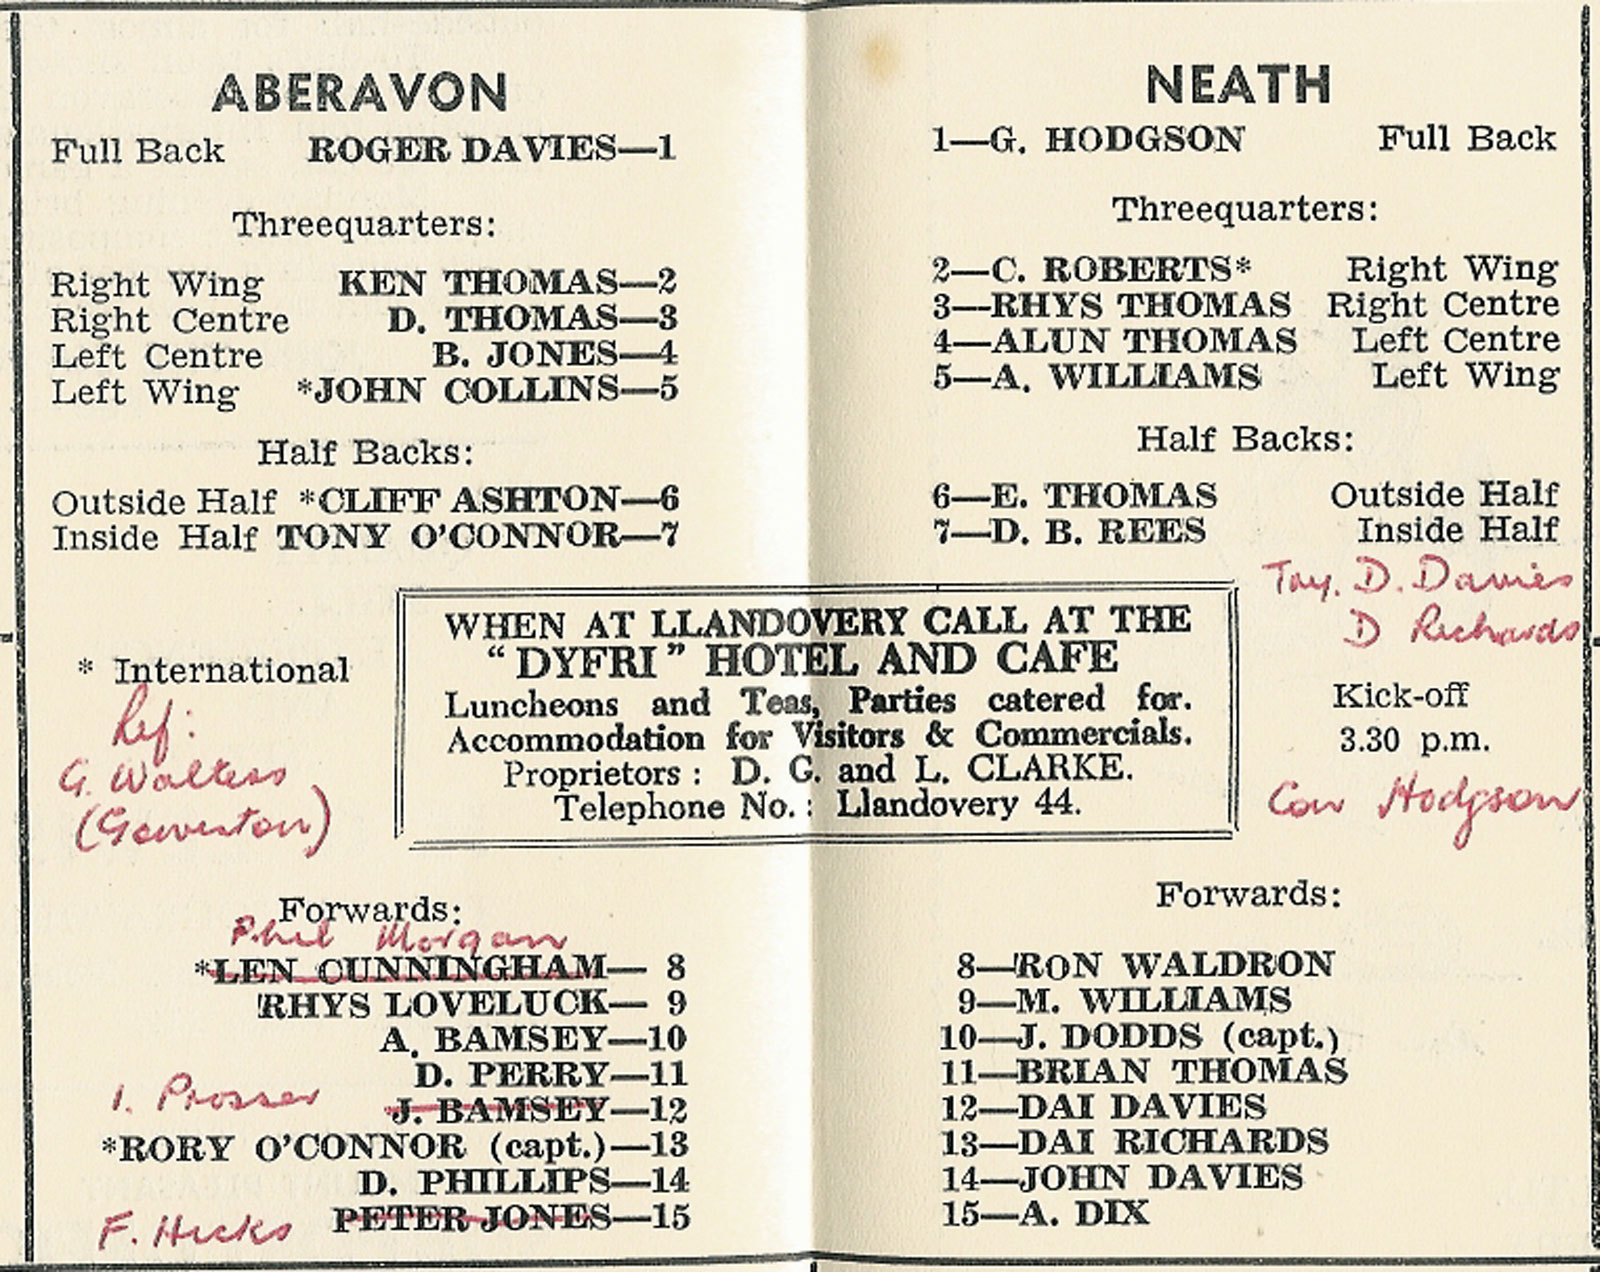 ABERAVON
Full Back ROGER DAVIES—1
Threequarters:
Right Wing KEN THOMAS—2
Right Centre D. THOMAS—3
Left Centre B. JONES—4
Left Wing *JOHN COLLINS—5
Half Backs:
Outside Half *CLIFF ASHTON—6
Inside Half TONY O'CONNOR—7
* International
Ref:
G. Walters
(Gowerton)
Forwards:
Phil Morgan
*LEN CUNNINGHAM— 8
RHYS LOVELUCK— 9
A. BAMSEY—10
D. PERRY—11
I. Prosser J. BAMSEY—12
*RORY O'CONNOR (capt.)—13
D. PHILLIPS—14
F. Hicks PETER JONES—15
WHEN AT LLANDOVERY CALL AT THE
"DYFRI" HOTEL AND CAFE
Luncheons and Teas, Parties catered for.
Accommodation for Visitors & Commercials.
Proprietors : D. G. and L. CLARKE.
Telephone No. : Llandovery 44.
NEATH
1—G. HODGSON Full Back
Threequarters:
2—C. ROBERTS* Right Wing
3—RHYS THOMAS Right Centre
4—ALUN THOMAS Left Centre
5—A. WILLIAMS Left Wing
Half Backs:
6—E. THOMAS Outside Half
7—D. B. REES Inside Half
D. Davies
D Richards
Kick-off
3.30 p.m.
Con Hodgson
Forwards:
8—RON WALDRON
9—M. WILLIAMS
10—J. DODDS (capt.)
11—BRIAN THOMAS
12—DAI DAVIES
13—DAI RICHARDS
14—JOHN DAVIES
15—A. DIX